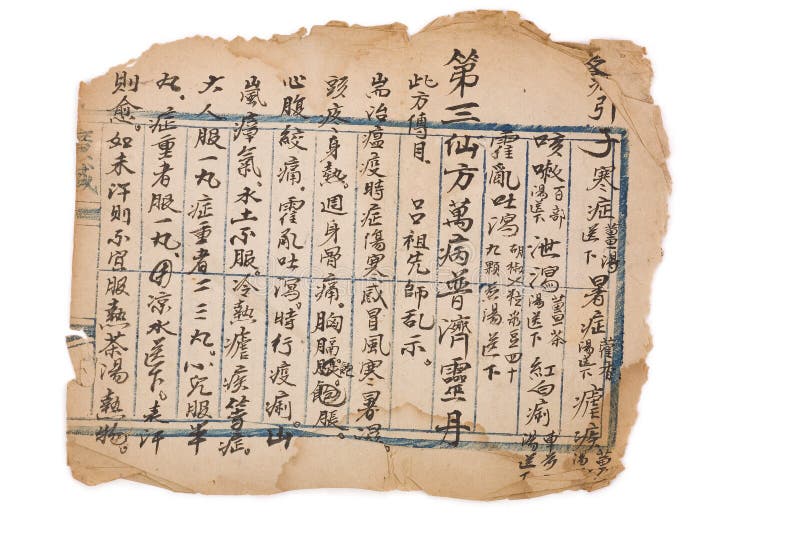 引子寒症薑湯送下暑症藿香湯送下瘧疾
咳嗽百部湯送下泄瀉薑茶湯送下紅白痢車前湯送下
霍亂吐瀉胡椒粒彔豆四十九顆煎湯送下
第三仙方萬病普濟靈丹
此方傳自。呂祖先師乩示。
耑治瘟疫時症傷寒感冒風寒暑濕。
頭疼身熱。週身骨痛。胸膈飽脹。
心腹絞痛。霍亂吐瀉。時行疫痢。山
嵐瘴氣。水土不服。冷熱瘧疾等症。
大人服一丸症重者二三丸。小兒服半
丸。症重者服一丸。用凉水送下。表汗
則愈。如未汗則不宜服熱茶湯熱物。